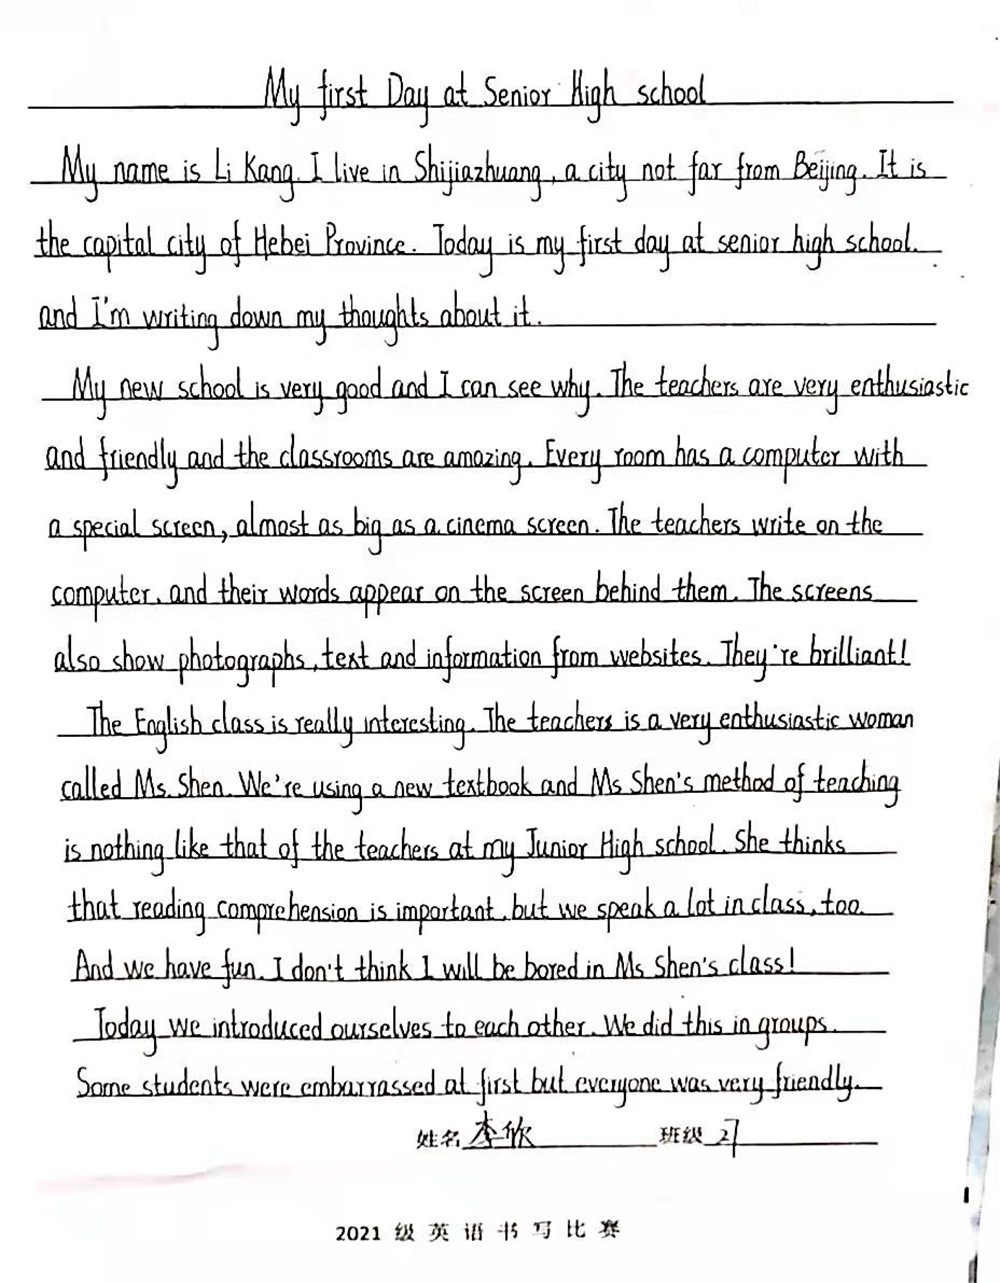 My first Day at Senior High school
My name is Li Kang. I live in Shijiazhuang, a city not far from Beijing. It is
the capital city of Hebei Province. Today is my first day at senior high school.
and I'm writing down my thoughts about it.
My new school is very good and I can see why. The teachers are very enthusiastic
and friendly and the classrooms are amazing. Every room has a computer with
a special screen, almost as big as a cinema screen. The teachers write on the
computer, and their words appear on the screen behind them. The screens
also show photographs, text and information from websites. They're brilliant!
The English class is really interesting. The teachers is a very enthusiastic woman
called Ms. Shen. We're using a new textbook and Ms Shen's method of teaching
is nothing like that of the teachers at my Junior High school. She thinks
that reading comprehension is important, but we speak a lot in class, too.
And we have fun. I don't think I will be bored in Ms Shen's class!
Today we introduced ourselves to each other. We did this in groups.
Some students were embarrassed at first but everyone was very friendly.
姓名 李欣 班级 27
2021 级英语书写比赛